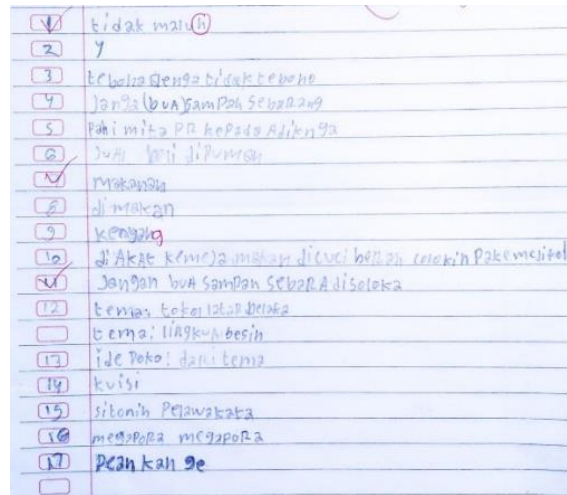 1 tidak maluh
2 y
3 tebohodenga tidak teboho
4 Janga (buA) Sampah Sebarang
5 Pahi mita PR kepada Adiknya
6 JuAl beri dirumah
7 makanan
8 di makan
9 kengang
10 di AkAt kemeja makan dicuci
11 Jangan buA Sampah SebarA disoloka
12 tema, tokoh latar belaka
tema: lingkuA besih
13 ide Poko: dari tema
14 kuisi
15 sitonih Pelawakata
16 megapora megapora
17 Pean kan ge